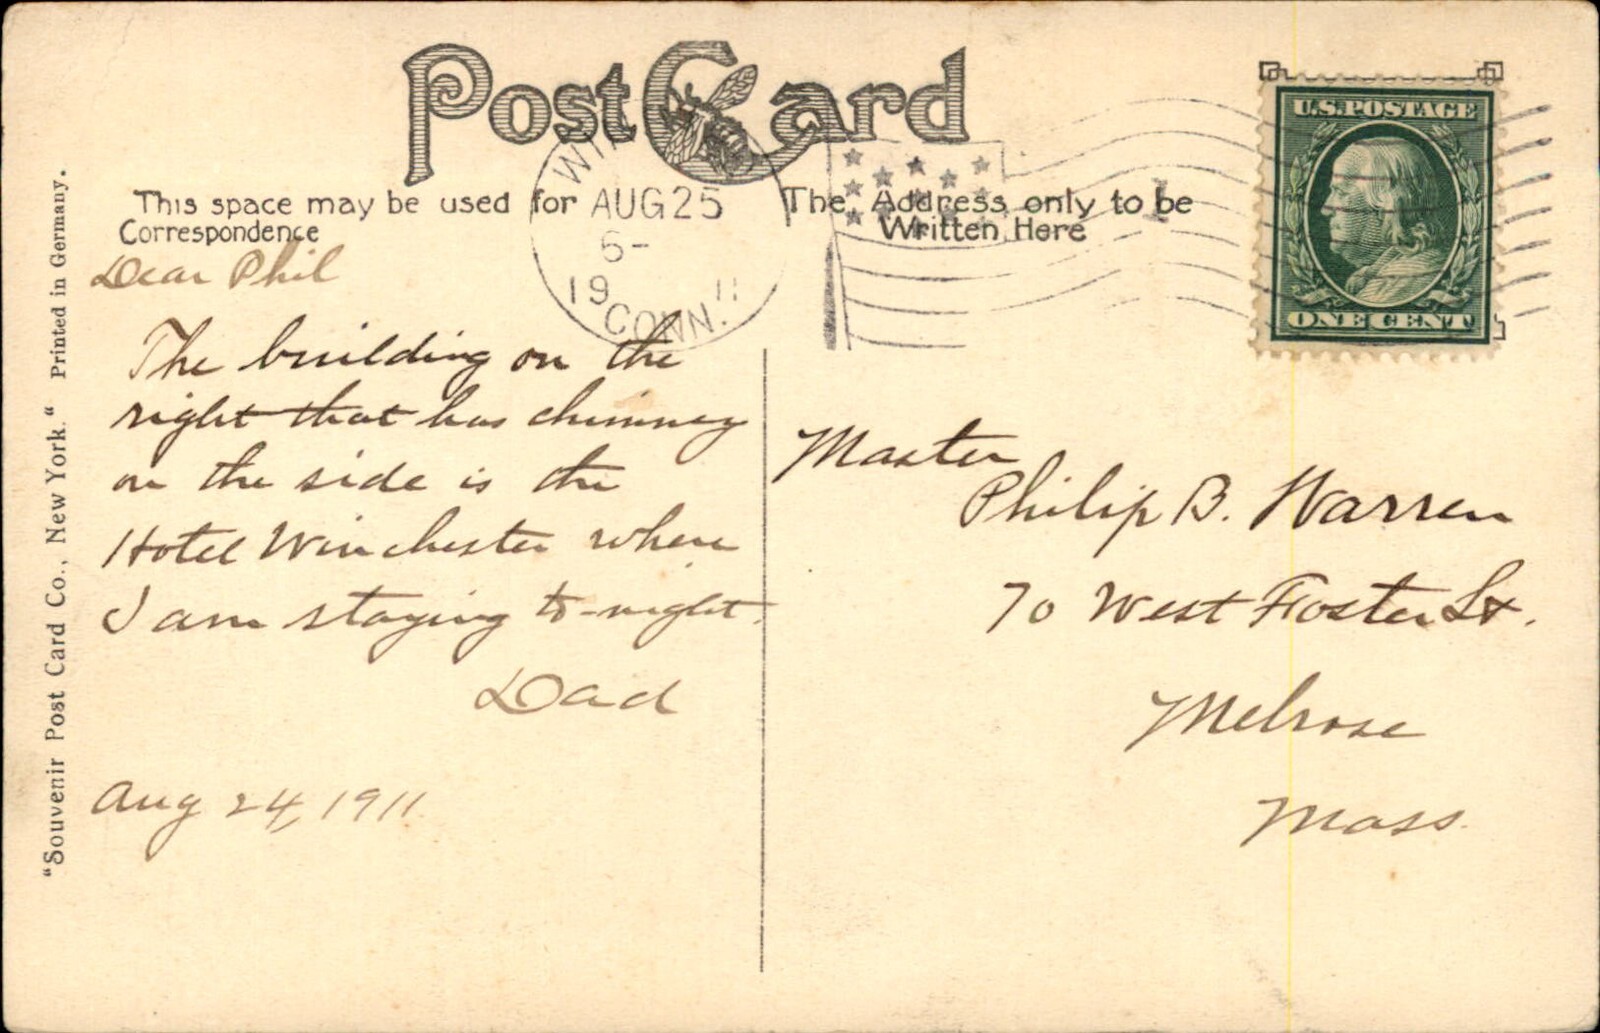 Post Card
This space may be used for
Correspondence
The Address only to be
Written Here
AUG 25
6-
19 11
CONN.
U.S. POSTAGE
ONE CENT
Dear Phil
The building on the
right that has chimney
on the side is the
Hotel Winchester where
I am staying to-night.
Dad
Aug 24, 1911
Master
Philip B. Warren
70 West Foster St.
Melrose
Mass.
"Souvenir Post Card Co., New York." Printed in Germany.